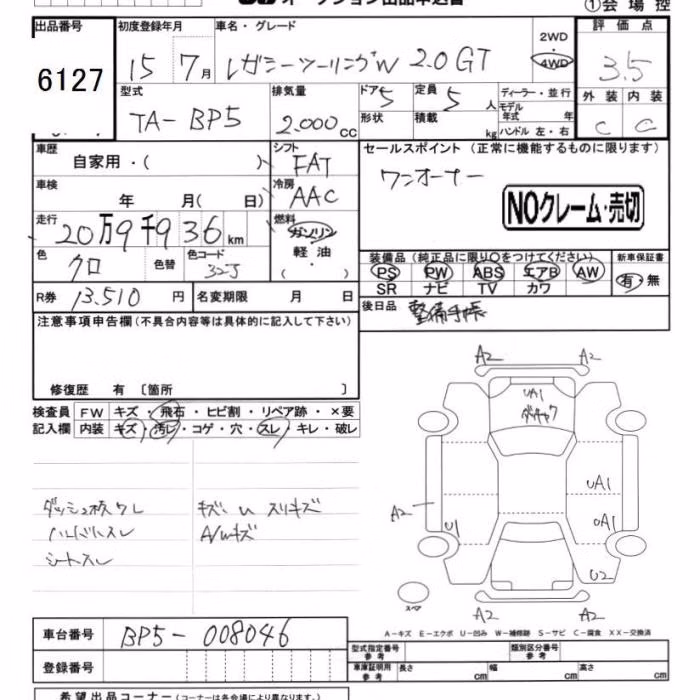 オークション出品申込書
①会場控
出品番号 初度登録年月 車名・グレード 評価点
6127 15 7月 レガシーツーリングW 2.0GT 2WD 4WD 3.5
型式 排気量 ドア 5 定員 5人 ディーラー・並行 外装 内装
TA-BP5 2.000cc 形状 積載 kg モデル年式 年 C C
ハンドル 左・右
車歴 シフト セールスポイント(正常に機能するものに限ります)
自家用・( ) FAT ワンオーナー
車検 冷房
年 月( 日) AAC NOクレーム・売切
走行 燃料
20万9千936km ガソリン
色 色替 色コード 軽油 装備品(純正品に限り〇をつけてください) 新車保証書
クロ 32J ・( ) PS PW ABS エアB AW 有・無
SR ナビ TV カワ
R券 13.510円 名変期限 月 日 後日品 整備手帳
注意事項申告欄(不具合内容等は具体的に記入して下さい)
修復歴 有 〔箇所 〕
検査員 FW キズ・飛石・ヒビ割・リペア跡・×要
記入欄 内装 キズ・汚レ・コゲ・穴・スレ・キレ・破レ
キズ・U スリキズ
A/Wキズ
シートスレ
A2 A2
UA1
A2 U1 UA1
UA1
U2
スペア A2 A2
A-キズ E-エクボ U-凹み W-補修跡 S-サビ C-腐食 XX-交換済
車台番号 BP5-008046 型式指定番号 参考 類別区分番号 参考
登録番号 車庫証明用 参考 長さ cm 幅 cm 高さ cm
希望出品コーナー(コーナーは各会場により異なります。)